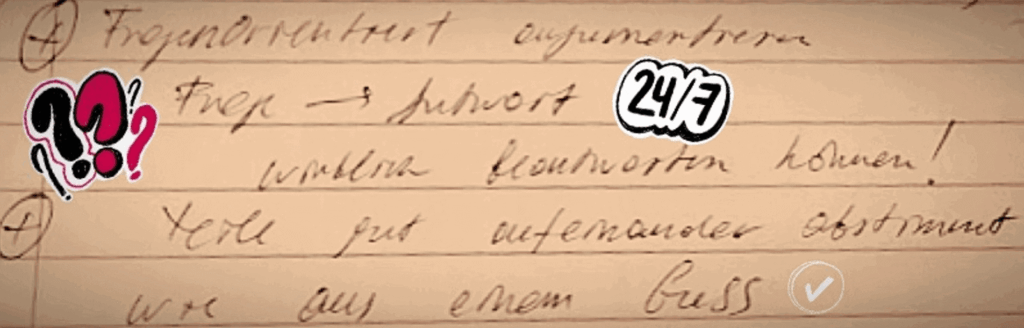 ⊕ Fragenorientiert argumentieren
Frage → Antwort 24/7
wirklich beantworten können!
⊕ Teile gut aufeinander abstimmt
wie aus einem Guss